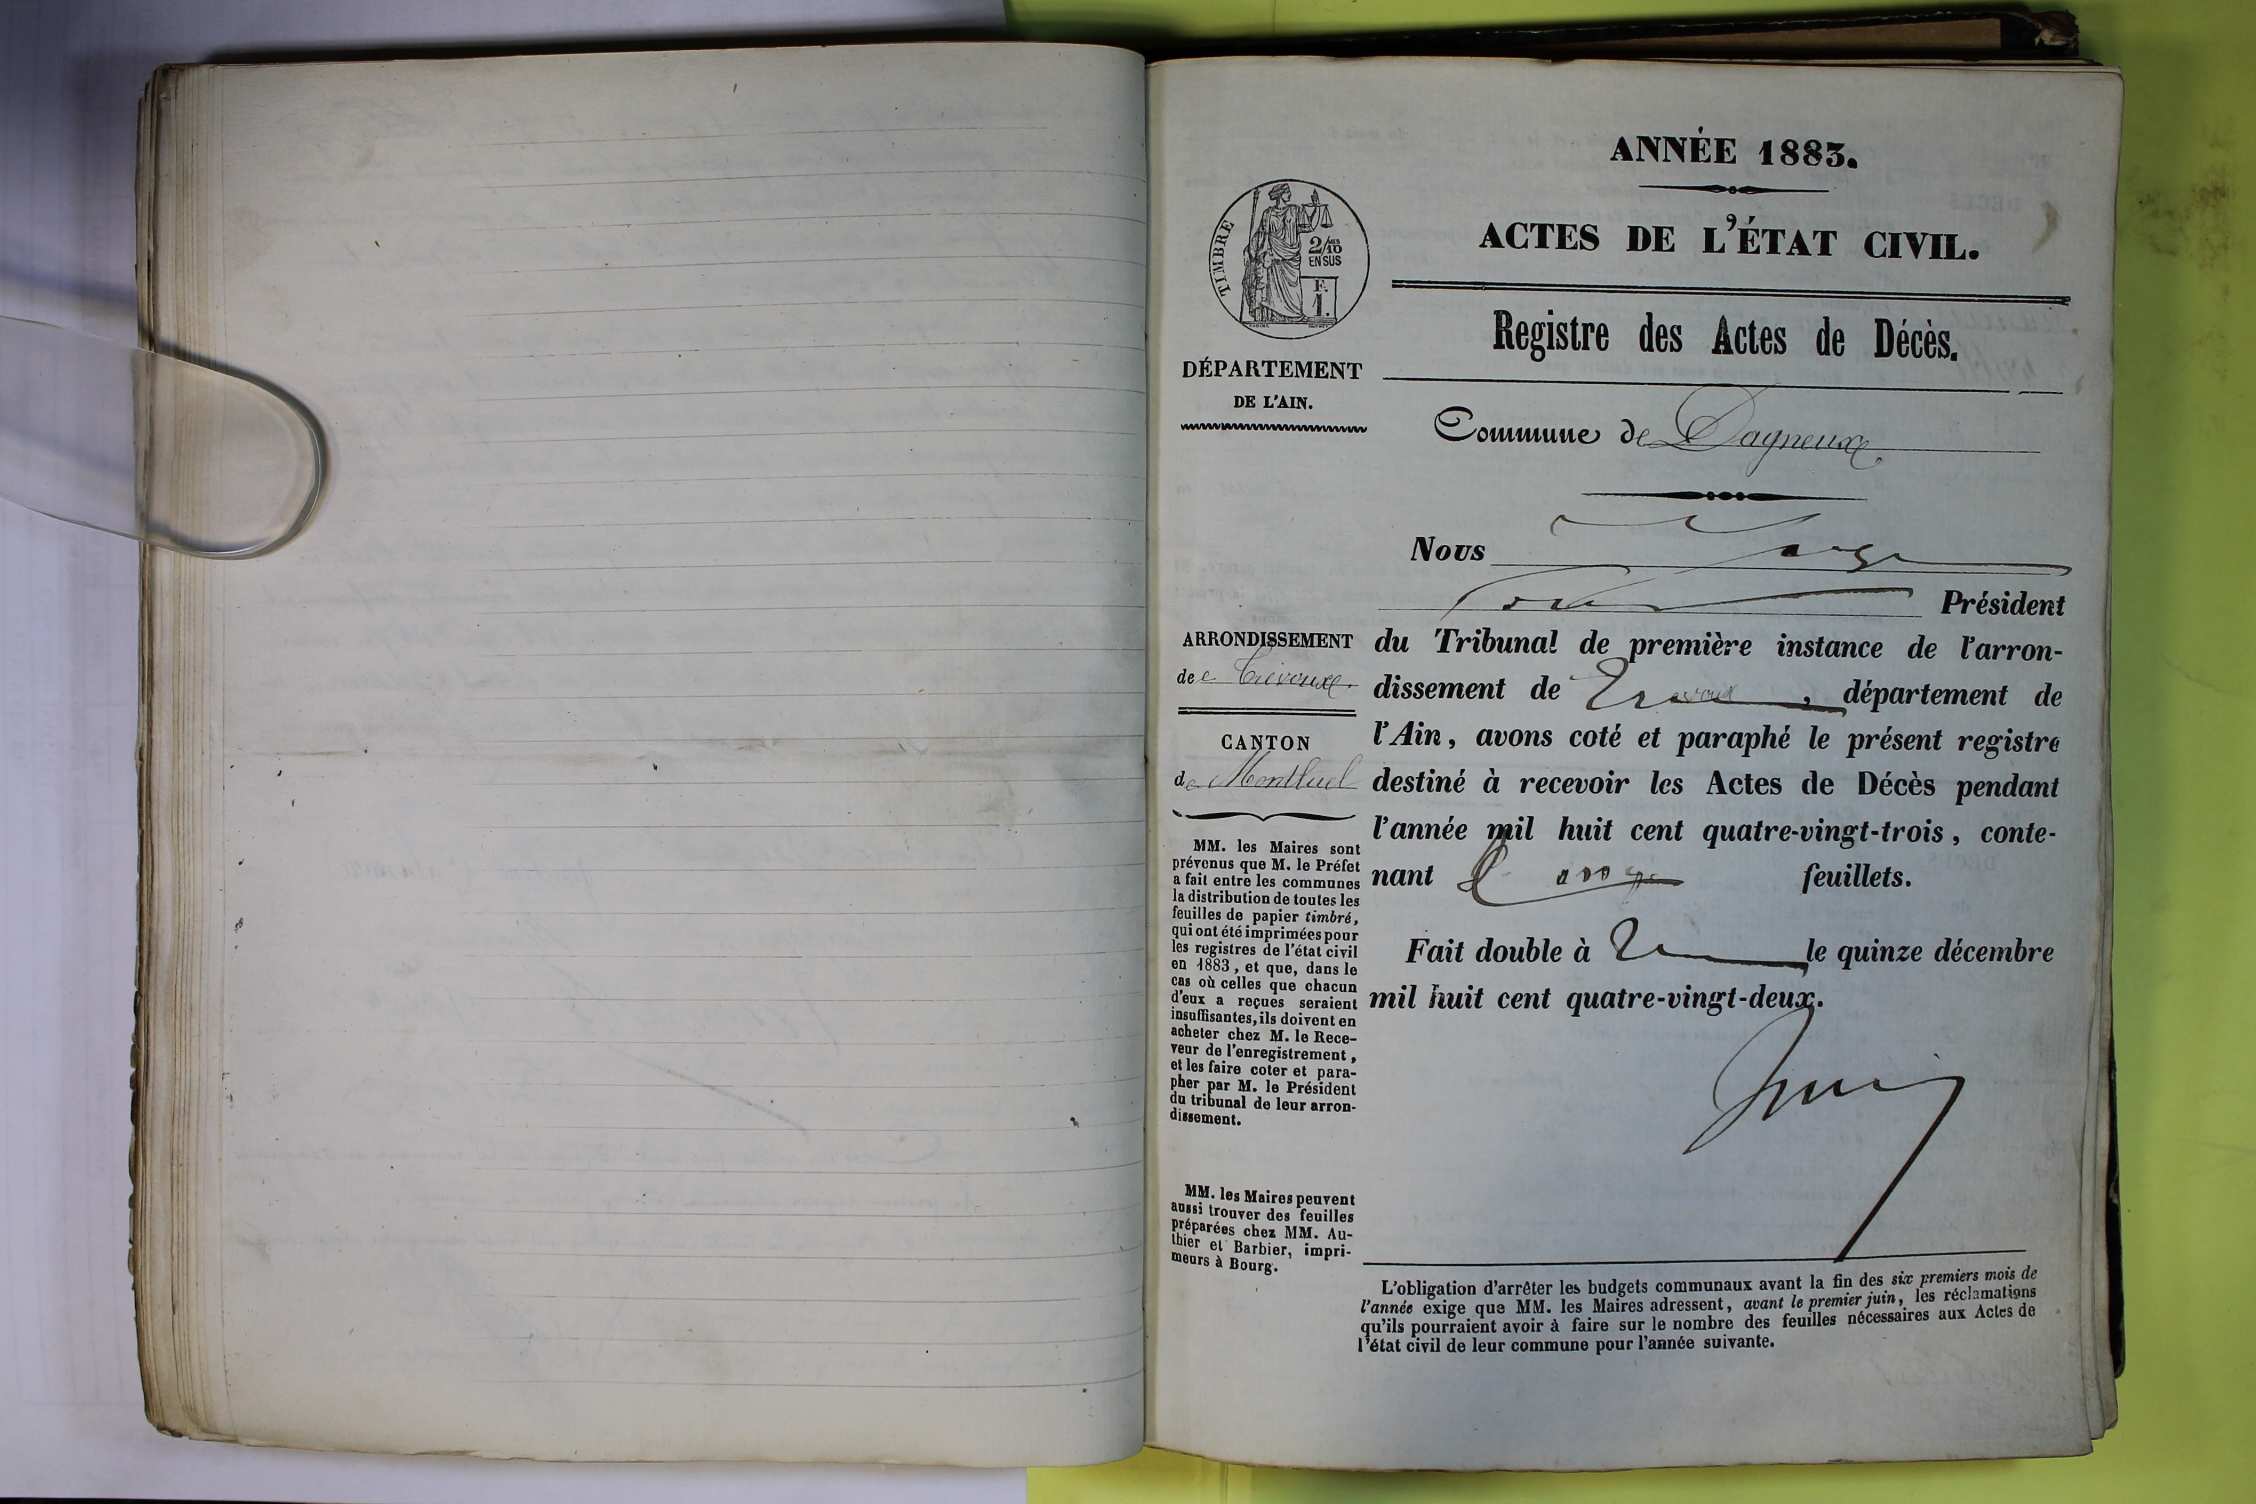 ANNÉE 1883.
ACTES DE L'ÉTAT CIVIL.
TIMBRE
2/10 MES
EN SUS
F.
1.
Registre des Actes de Décès.
DÉPARTEMENT
DE L'AIN.
Commune de Dagneux
Nous
Président
ARRONDISSEMENT
de Trévoux.
CANTON
de Montluel
du Tribunal de première instance de l'arron-
dissement de Trévoux, département de
l'Ain, avons coté et paraphé le présent registre
destiné à recevoir les Actes de Décès pendant
l'année mil huit cent quatre-vingt-trois, conte-
nant feuillets.
Fait double à le quinze décembre
mil huit cent quatre-vingt-deux.
MM. les Maires sont
prévenus que M. le Préfet
a fait entre les communes
la distribution de toutes les
feuilles de papier timbré,
qui ont été imprimées pour
les registres de l'état civil
en 1883, et que, dans le
cas où celles que chacun
d'eux a reçues seraient
insuffisantes, ils doivent en
acheter chez M. le Rece-
veur de l'enregistrement,
et les faire coter et para-
pher par M. le Président
du tribunal de leur arron-
dissement.
MM. les Maires peuvent
aussi trouver des feuilles
préparées chez MM. Au-
thier et Barbier, impri-
meurs à Bourg.
L'obligation d'arrêter les budgets communaux avant la fin des six premiers mois de
l'année exige que MM. les Maires adressent, avant le premier juin, les réclamations
qu'ils pourraient avoir à faire sur le nombre des feuilles nécessaires aux Actes de
l'état civil de leur commune pour l'année suivante.